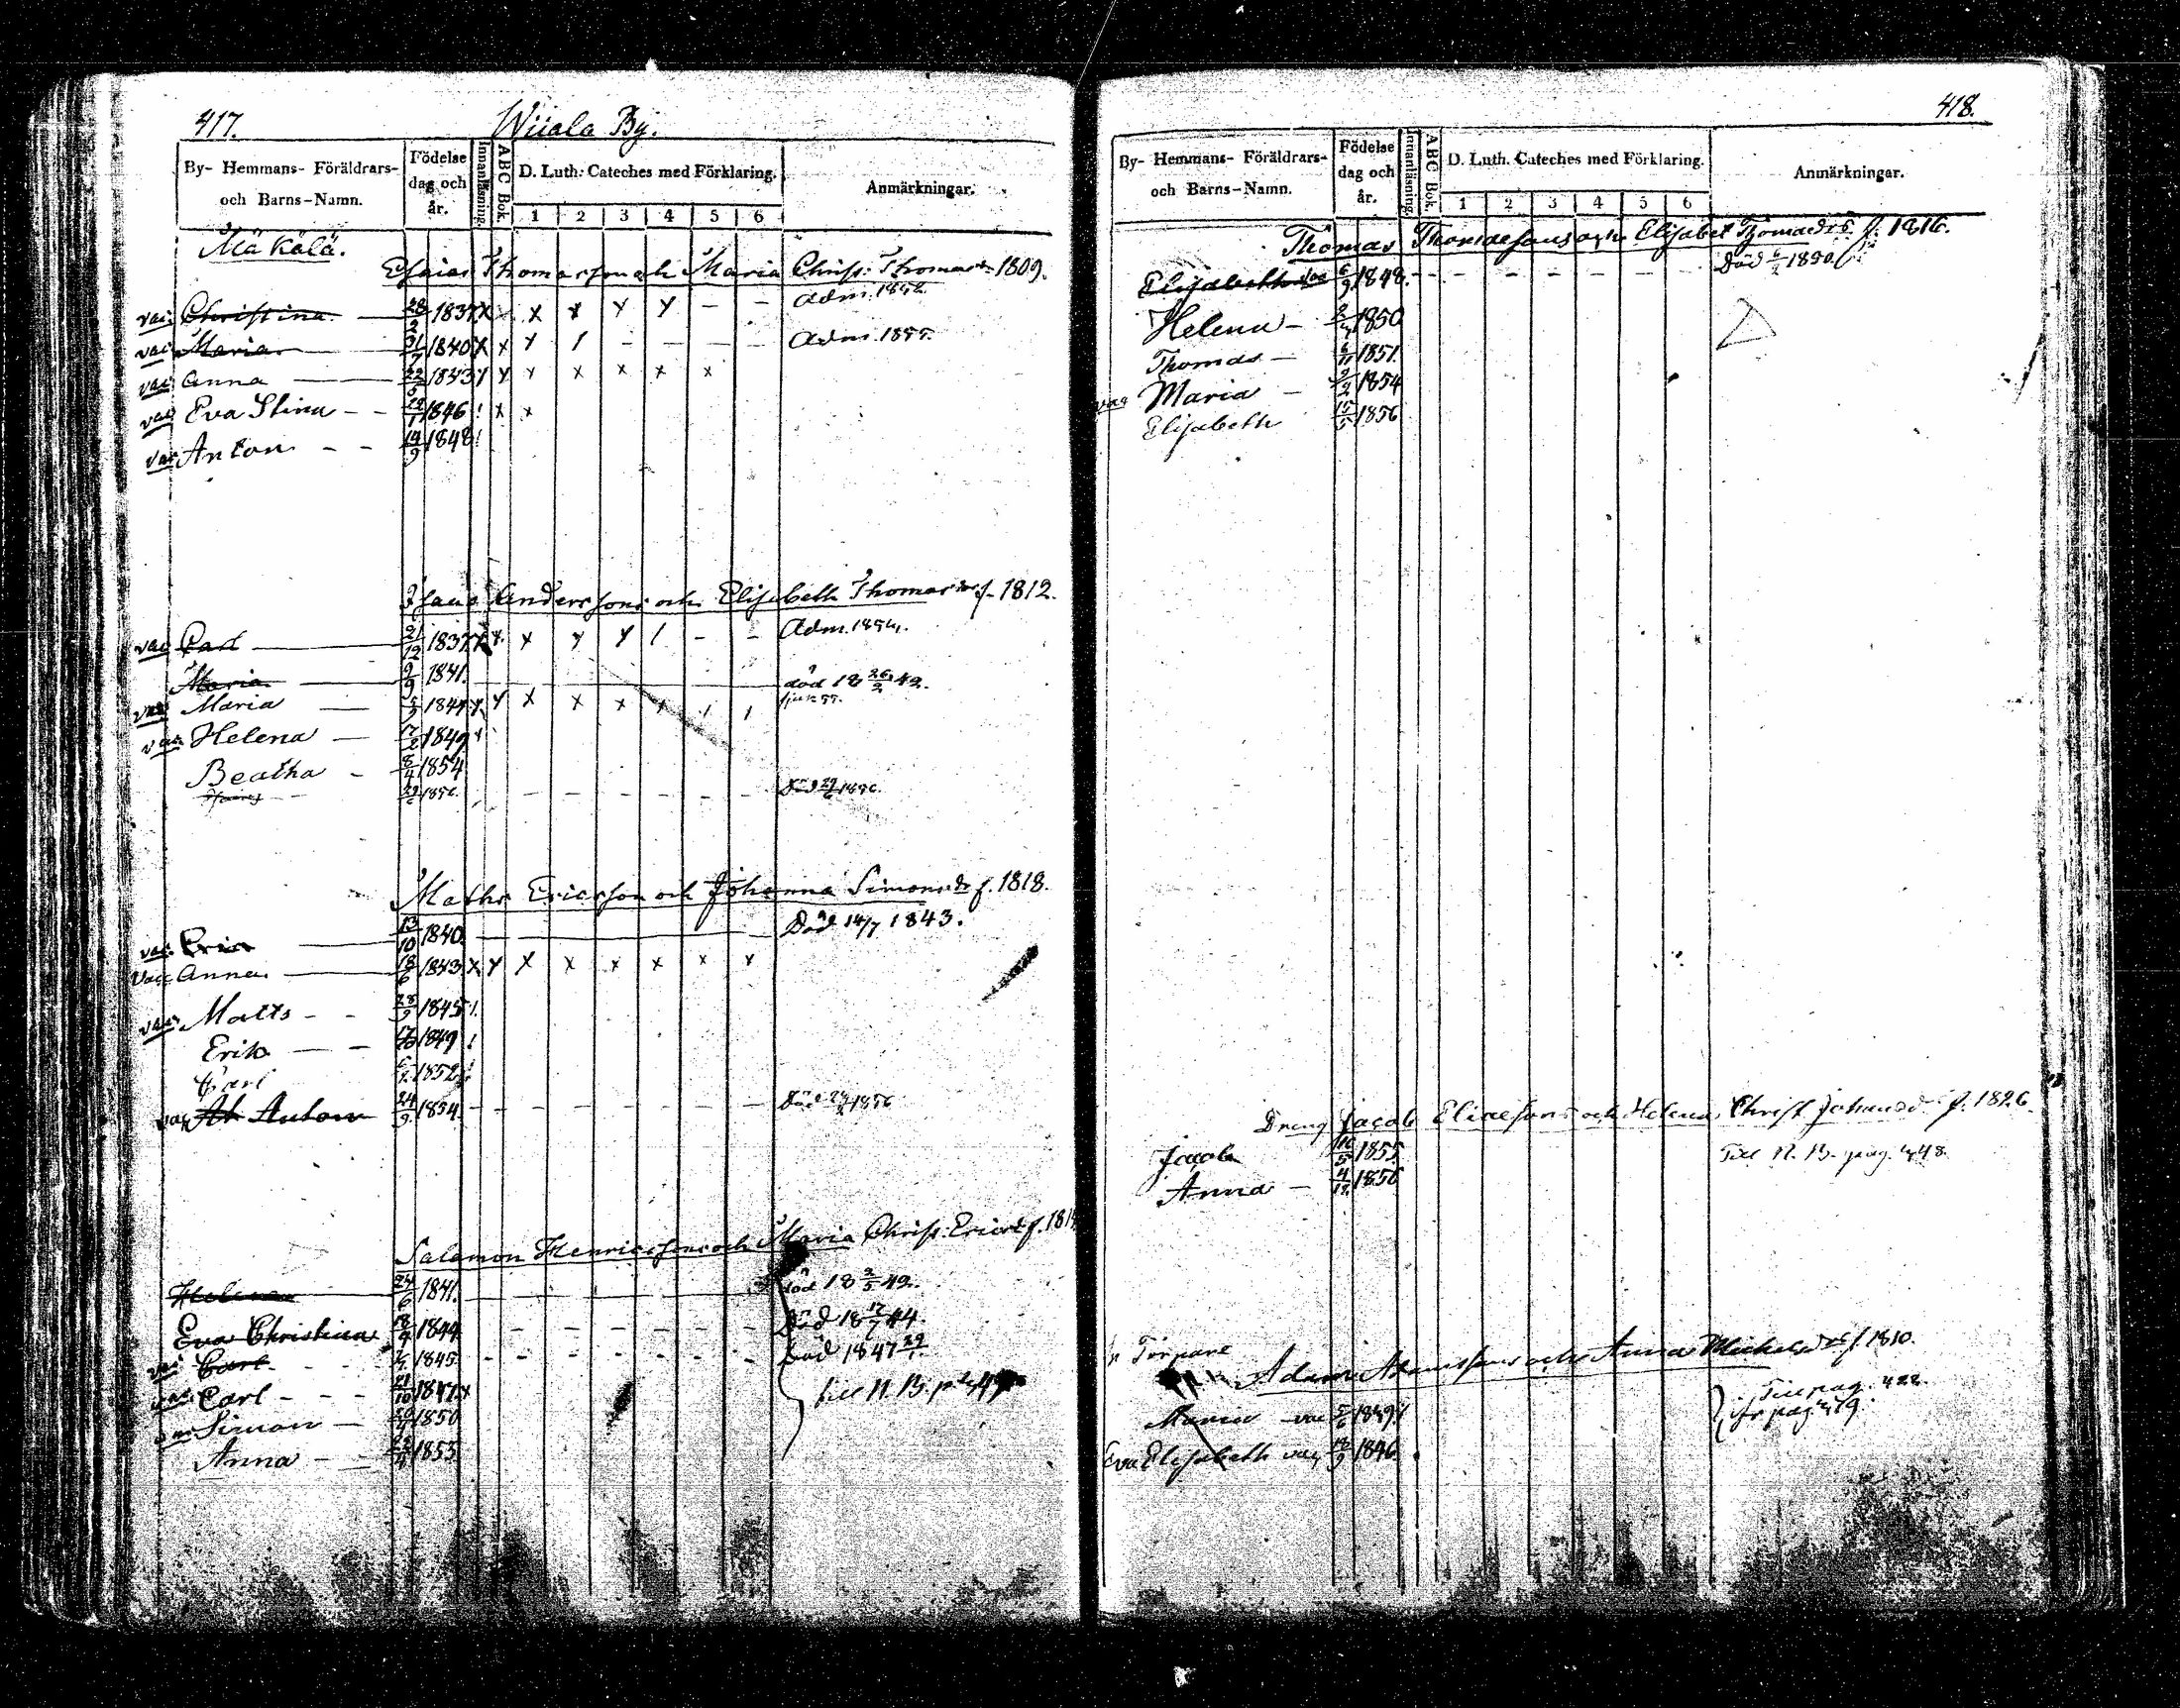 417. Wiiala By.
By- Hemmans- Föräldrars- och Barns-Namn. Födelse dag och år. Innanläsning. ABC Bok. D. Luth. Cateches med Förklaring. 1 2 3 4 5 6 Anmärkningar.
Mäkälä.
Esaias Thomasson och Maria Christ. Thomasdr 1809.
vac Christina 28/2 1837 x x x y y – – Adm. 1852.
vac Maria 31/7 1840 x x y 1 – – – – Adm. 1855.
vac Anna 1843 y y y x x x x
vac Eva Stina 1846 x x
vac Anton 14/9 1848
Isaac Andersson och Elisabeth Thomasdr f. 1812.
vac 21/12 1837 x x x y y 1 – – Adm. 1854.
Maria 9/9 1841. död 18 26/2 42.
vac Maria y x x x
vac Helena 17/2 1849
Beatha 8/4 1854
1856. – – – – – – Död 1856.
Matts Ericsson och Johanna Simonsdr f. 1818.
vac Eric 13/10 1840. Död 14/7 1843.
Vac Anna 18/6 1843 x y x x x x x y
vac Matts 1845
Erik 1849
Carl 1852
vac Anton 24/9 1854 – – – – – – Död 1856
Salomon Henricsson och Maria Christ. Ericsdr f.
Helena 24/6 1841. död 18 2/5 42.
Eva Christina 1844 – – – – – – Död 18 44.
vac Carl 1845 – – – – – – Död 1847
vac Carl 21/10 1847 till N. B. p.
vac Simon 1850
Anna 1853
418.
By- Hemmans- Föräldrars- och Barns-Namn. Födelse dag och år. Innanläsning. ABC Bok. D. Luth. Cateches med Förklaring. 1 2 3 4 5 6 Anmärkningar.
Thomas Thomasson och Elisabet Thomasdr f. 1816.
Elisabeth vac 6/9 1848. – – – – – – Död 1850
Helena 1850
Thomas 6/11 1851
vac Maria 1854
Elisabeth 15/5 1856
Dreng Jacob Eliasson och Helena Christ Johansdr f. 1826
Jacob 16/5 1855 Till N. B. pag. 448.
Anna 4/12 1856
Torpare
Adam Adamsson och Anna Michelsdr f. 1810.
Maria vac 1849 Till pag. 422.
Eva Elisabeth vac 1846 fr pag 419.